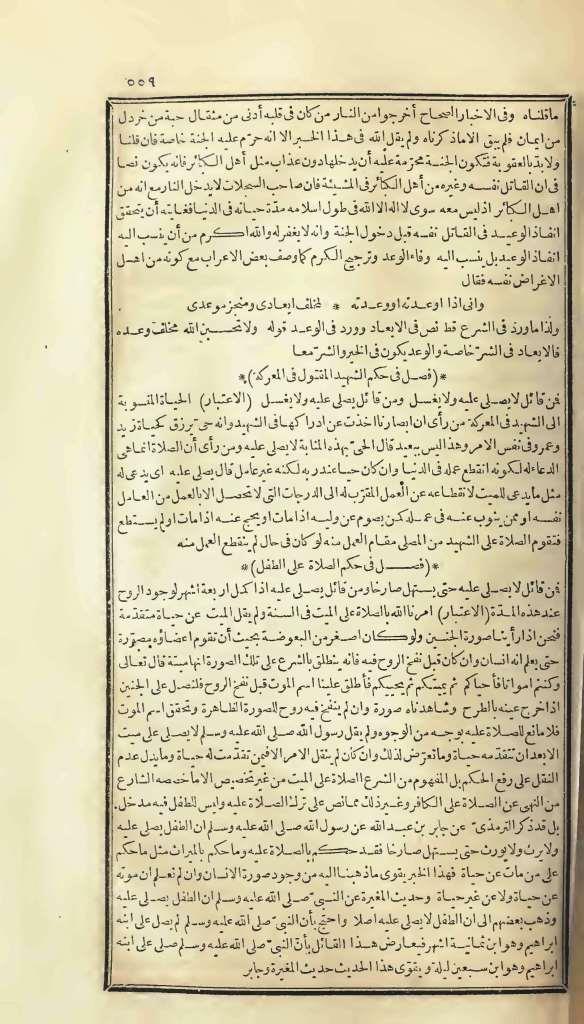 ٥٥٩
ماقلناه وفى الاخبار الصحاح أخرجوا من النار من كان فى قلبه أدنى من مثقال حبة من خردل
من ايمان فلم يبق الا ماذكرناه ولم يقل الله فى هذا الخبر الا انه حرّم عليه الجنة خاصة فان قلنا
ولا بدّ بالعقوبة فتكون الجنة محرّمة عليه أن يدخلها دون عذاب مثل أهل الكبائر فانه يكون نصا
فى ان القاتل نفسه وغيره من أهل الكبائر فى المشيئة فان صاحب السجلات لا يدخل النار مع انه من
اهل الكبائر اذ ليس معه سوى لا اله الا الله فى طول اسلامه مدّة حياته فى الدنيا فغايته أن يتحقق
انفاذ الوعيد فى القاتل نفسه قبل دخول الجنة وانه لا يغفر له والله اكرم من أن ينسب اليه
انفاذ الوعيد بل ينسب اليه وفاء الوعد وترجيح الكرم كما وصف بعض الاعراب مع كونه من اهل
الاغراض نفسه فقال
وانى اذا اوعدته او وعدته * لمخلف ايعادى ومنجز موعدى
ولذا ماورد فى الشرع قط نص فى الايعاد وورد فى الوعد قوله ولا تحسبنّ الله مخلف وعده
فالايعاد فى الشرّ خاصة والوعد يكون فى الخير والشرّ معا
*(فصل فى حكم الشهيد المقتول فى المعركة)*
فمن قائل لا يصلى عليه ولا يغسل ومن قائل يصلى عليه ولا يغسل (الاعتبار) الحياة المنسوبة
الى الشهيد فى المعركة من رأى ان ابصارنا اخذت عن ادراكها فى الشهيد وانه حىّ يرزق كحياة زيد
وعمرو فى نفس الامر وهذا ليس ببعيد قال الحىّ بهذه المثابة لا يصلى عليه ومن رأى أن الصلاة انما هى
الدعاء له لكونه انقطع عمله فى الدنيا وان كان حيا عند ربه لكنه غير عامل قال يصلى عليه اى يدعى له
مثل ما يدعى للميت لانقطاعه عن العمل المقرّب له الى الدرجات التى لا تحصل الا بالعمل من العامل
نفسه او ممن ينوب عنه فى عمله كمن يصوم عن وليه اذا مات او يحج عنه اذا مات او لم يستطع
فتقوم الصلاة على الشهيد من المصلى مقام العمل منه لو كان فى حال لم ينقطع العمل منه
*(فصل فى حكم الصلاة على الطفل)*
فمن قائل لا يصلى عليه حتى يستهل صارخا ومن قائل يصلى عليه اذا كمل اربعة اشهر لوجود الروح
عند هذه المدّة (الاعتبار) امرنا الله بالصلاة على الميت فى السنة ولم يقل الميت عن حياة متقدّمة
فنحن اذا رأينا صورة الجنين ولو كان اصغر من البعوضة بحيث أن تقوم اعضاؤه مصوّرة
حتى يعلم انه انسان وان كان قبل نفخ الروح فيه فانه ينطلق بالشرع على تلك الصورة انها ميتة قال تعالى
وكنتم امواتا فأحياكم ثم يميتكم ثم يحييكم فأطلق علينا اسم الموت قبل نفخ الروح فلنصل على الجنين
اذا خرج عينه بالطرح وشاهدناه صورة وان لم ينفخ فيه روح للصورة الظاهرة وتحقق اسم الموت
فلا مانع للصلاة عليه بوجه من الوجوه ولم يقل رسول الله صلى الله عليه وسلم لا يصلى على ميت
الا بعد ان تتقدّمه حياة وما تعرّض لذلك وان كان لم ينقل الامر الا فيمن تقدّمت له حياة وما يدل عدم
النقل على رفع الحكم بل المفهوم من الشرع الصلاة على الميت من غير تخصيص الا ما خصصه الشارع
من النهى عن الصلاة على الكافر وغير ذلك مما نص على ترك الصلاة عليه وليس للطفل فيه مدخل
بل قد ذكر الترمذىّ عن جابر بن عبد الله عن رسول الله صلى الله عليه وسلم ان الطفل يصلى عليه
ولا يرث ولا يورث حتى يستهل صارخا فقد حكم بالصلاة عليه وما حكم بالميراث مثل ما حكم
على من مات عن حياة فهذا الخبر يقوى ما ذهبنا اليه من وجود صورة الانسان وان لم نعلم ان موته
عن حياة ولا عن غير حياة وحديث المغيرة عن النبىّ صلى الله عليه وسلم ان الطفل يصلى عليه
وذهب بعضهم الى ان الطفل لا يصلى عليه اصلا واحتج بأن النبىّ صلى الله عليه وسلم لم يصل على ابنه
ابراهيم وهو ابن ثمانية اشهر فيعارض هذا القائل بأنّ النبىّ صلى الله عليه وسلم صلى على ابنه
ابراهيم وهو ابن سبعين ليلة ويقوى هذا الحديث حديث المغيرة وجابر